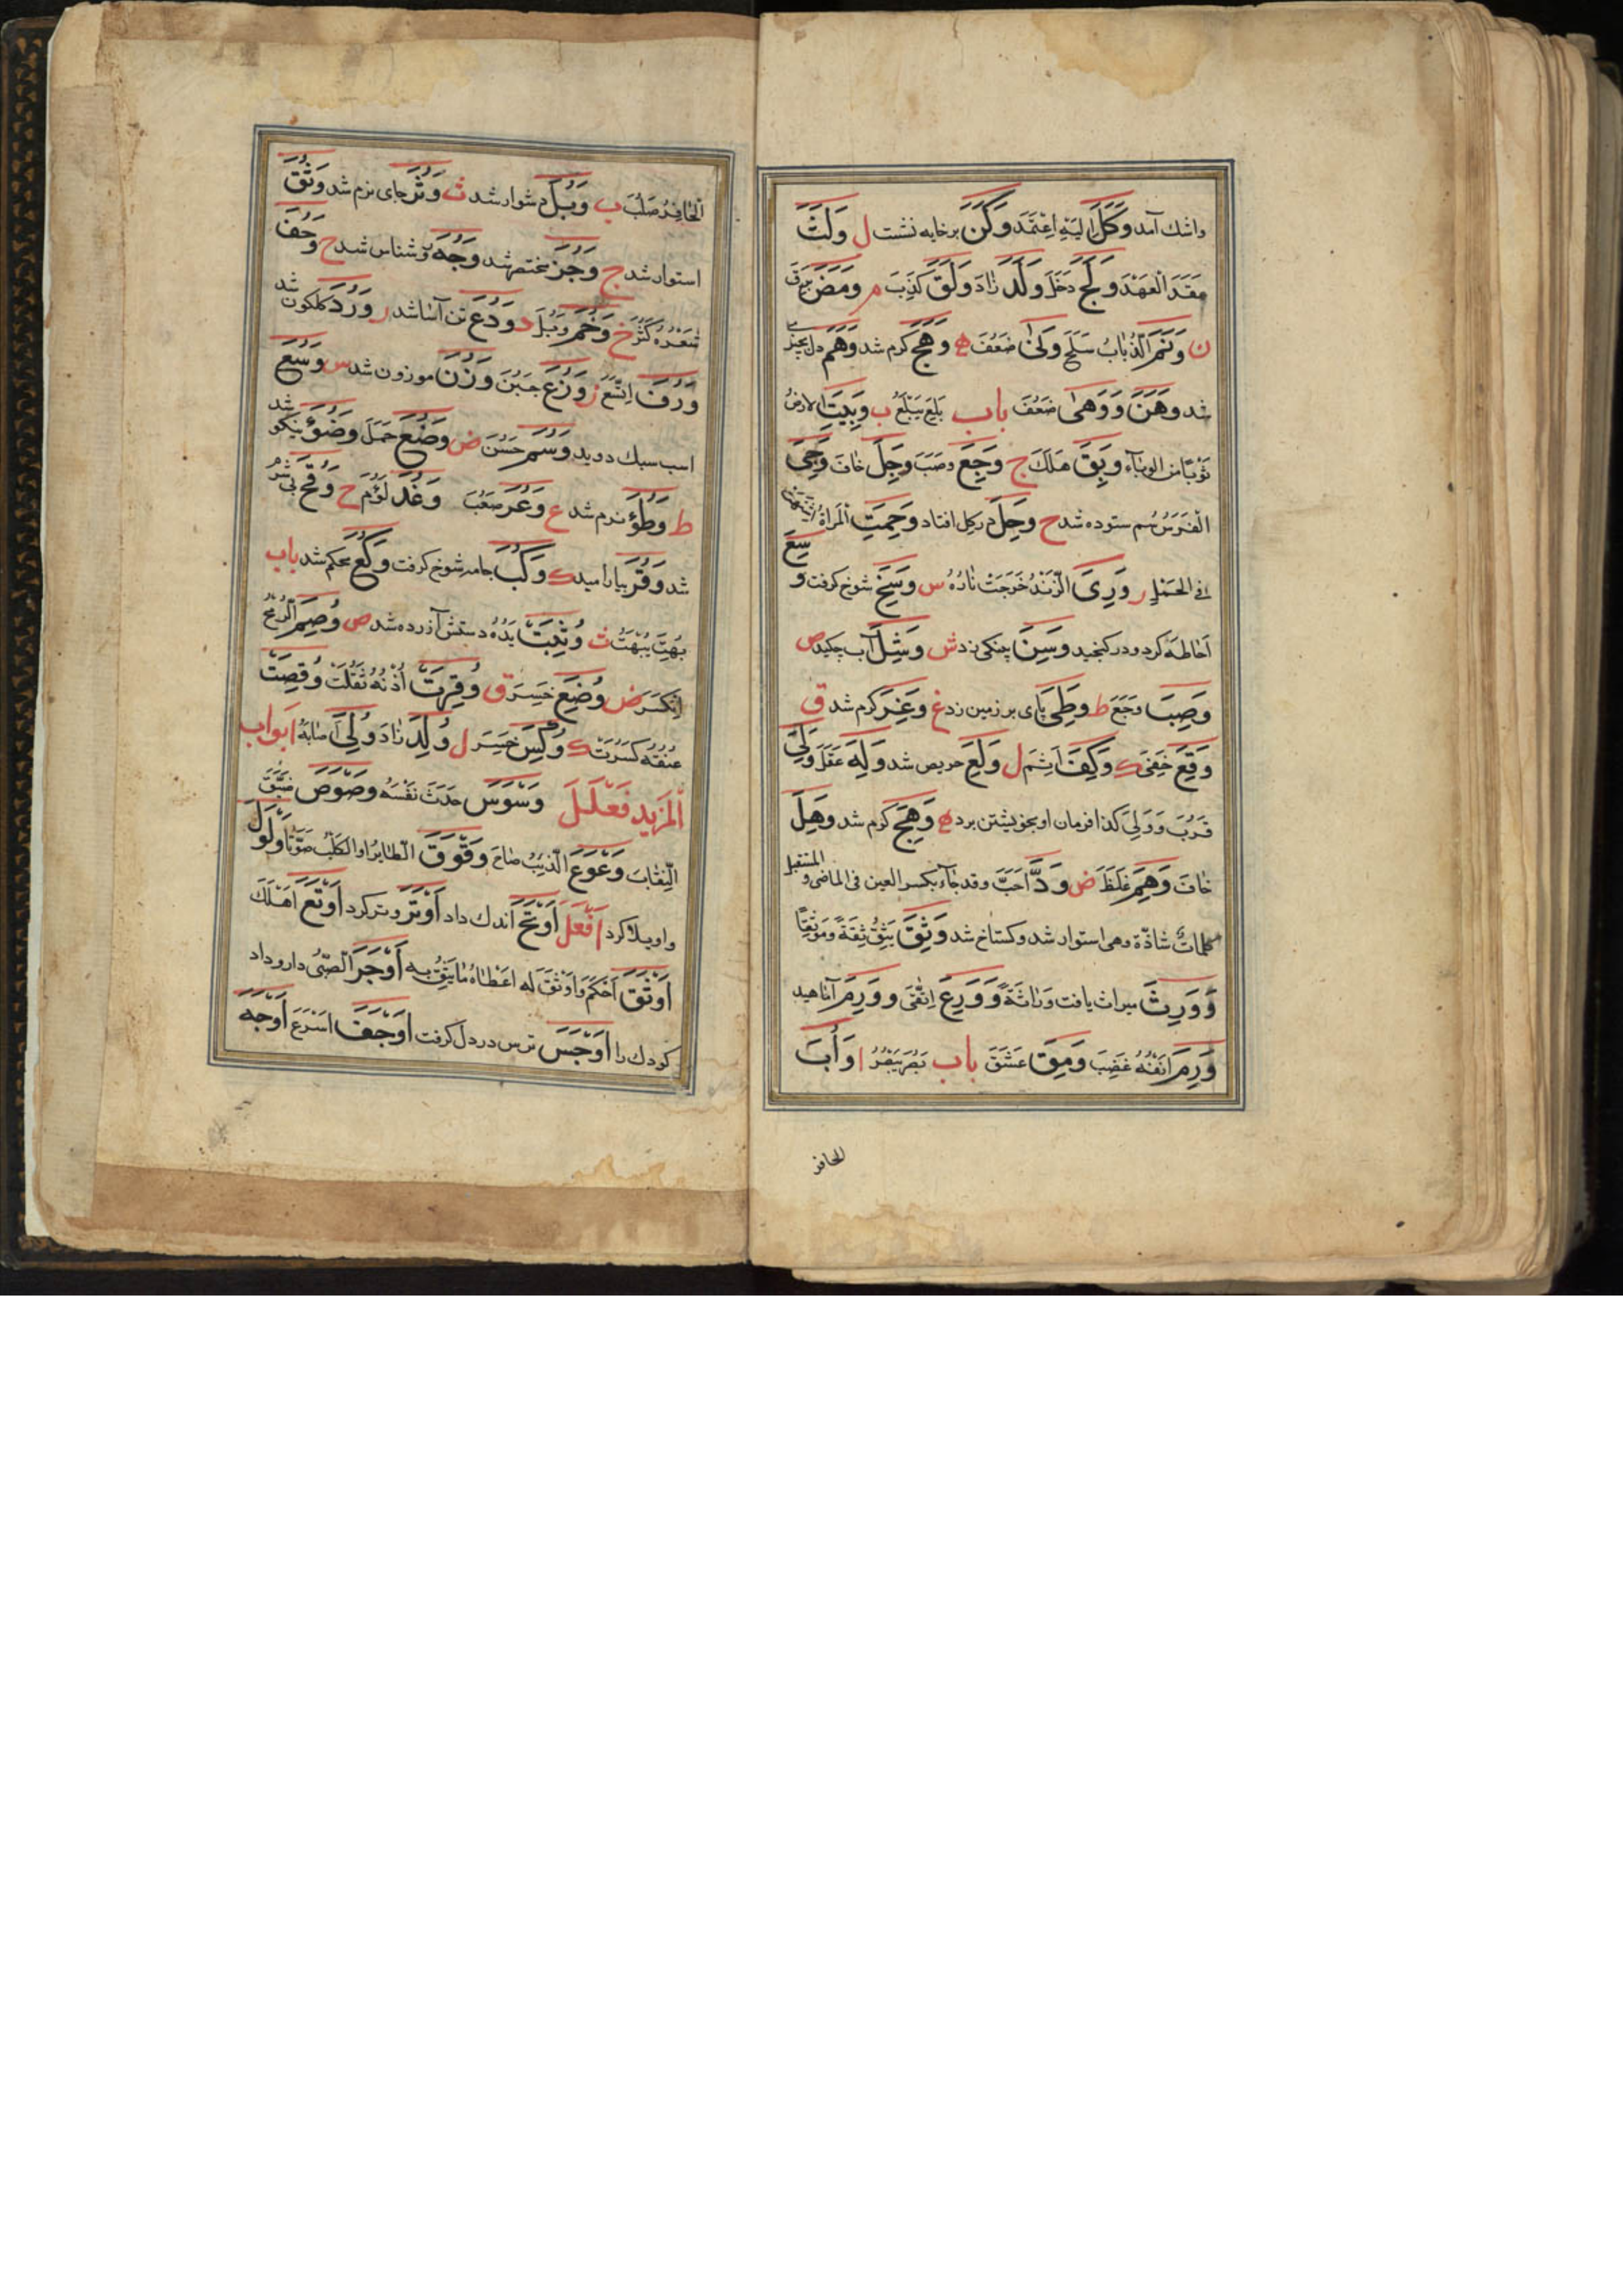 واشك آمد وَكَلَ اِلَيْهِ اِعْتَمَدَ وَكَنَ برخايه نشست ل وَلَثَ
عَقَدَ الْعَهْدَ وَلَجَ دَخَلَ وَلَدَ زاد وَلَقَ كَذَبَ م وَمَضَ بَرَقَ
ن وَنَمَ الذُّبابُ سَلَحَ وَنىٰ ضَعُفَ ه وَهَجَ كرم شد وَهَمَ دل بچيزى
شد وَهَنَ وَوَهىٰ ضَعُفَ باب بَلِعَ يَبْلَعُ ب وَبِئَتِ الارضُ
وَبِقَ هَلَكَ ج وَجِعَ وصَبَ وَجِلَ خافَ وَجِىَ
الْفَرَسُ سم ستوده شد ح وَحِلَ در كل افتاد وَحِمَتِ الْمَرأةُ
فى الحَمْلِ ر وَرِىَ الزَّنْدُ خَرَجَتْ نارُهُ س وَسِخَ شوخ كرفت وَسِعَ
اَحاطَهَ كرد ودر كنجيد وَسِنَ پينكى زد ش وَشِلَ آب چكيد ص
وَصِبَ وَجَعَ ط وَطِئَ پاى بر زمين زد غ وَغِرَ كرم شد ق
وَقِعَ حَفِىَ ك وَكِفَ اَثِمَ ل وَلِعَ حريص شد وَلِهَ عَقَلَ وَلِىَ
قَرُبَ وَوَلِىَ كذا فرمان او بخويشتن برد ه وَهِجَ كرم شد وَهِلَ
خافَ وَهِمَ غَلِطَ ض وَدَّ اَحَبَّ وقد جآء بكسر العين فى الماضى والمستقبل
كلماتٌ شاذّة وهى استوار شد وكستاخ شد وَثِقَ يَثِقُ ثِقَةً ومَوْثِقًا
وَوَرِثَ ميراث يافت وَراثَةً وَوَرِعَ اِتَّقىٰ وَوَرِمَ آماهيد
وَرِمَ اَنْفُهُ غَضِبَ وَمِقَ عَشِقَ باب بَصُرَ يَبْصُرُ ا وَأُبَ
الحافر
الْحافِرُ صَلُبَ ب وَبُلَ دشوار شد ث وَثُرَ جاى نرم شد وَثُقَ
استوار شد ج وَجُزَ مختصر شد وَجُهَ روشناس شد ح وَحُفَ
شَعْرُهُ كَثُرَ خ وَخُمَ وَبُلَ د وَدُعَ تن آسا شد ر وَرُدَ كلكون شد
وَرُفَ اِتَّسَعَ ز وَزُعَ جَبُنَ وَزُنَ موزون شد س وَسُعَ
اسب سبك دويد وَسُمَ حَسُنَ ض وَضُعَ حَمَلَ وَضُؤَ نيكو شد
ط وَطُؤَ نرم شد ع وَعُرَ صَعُبَ وَغُدَ لَؤُمَ ح وَقُحَ بى شرم
شد وَقُرَ بياراميد ك وَكُبَ جامه شوخ كرفت وَكُعَ محكم شد باب
بُهِتَ يُبْهَتُ ث وُثِئَتْ يَدُهُ دستش آزرده شد ص وُصِمَ الرُّمْحُ
اِنْكَسَرَ ض وُضِعَ خَسِرَ ق وُقِرَتْ اُذْنُهُ ثَقُلَتْ وُقِصَتْ
عُنُقُهُ كُسِرَتْ ك وُكِسَ خَسِرَ ل وُلِدَ زاد وُلِىَ اَصابَهُ ابواب
الْمَزيد فَعْلَلَ وَسْوَسَ حَدَثَ نَفْسَهُ وَصْوَصَ ضَيَّقَ
النِّقابَ وَعْوَعَ الذِّئبُ صاحَ وَقْوَقَ الطّايرُ او الكلبُ صَوَّتا وَلْوَلَ
واويلا كرد اَفْعَلَ اَوْتَحَ اندك داد اَوْتَرَ وتر كرد اَوْتَغَ اَهْلَكَ
اَوْثَقَ اَحْكَمَ وَاَوْثَقَ لَه اَعْطاهُ ما يَثِقُ بِه اَوْجَرَ الصّبىَّ دارو داد
كودك را اَوْجَسَ ترس در دل كرفت اَوْجَفَ اَسْرَعَ اَوْجَهَ